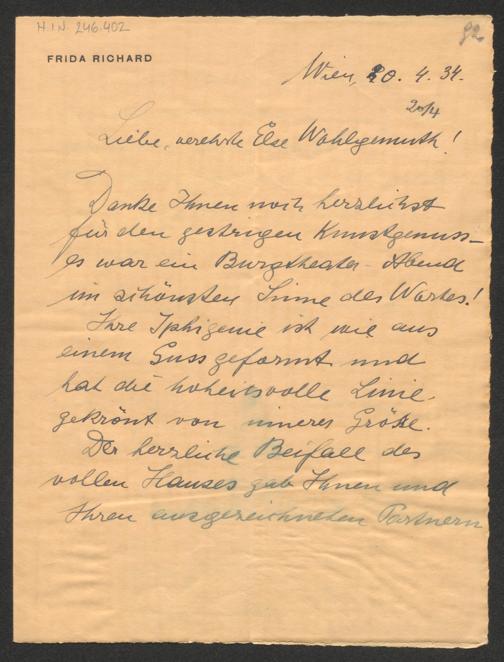 H.I.N. 246.402
82
FRIDA RICHARD
Wien, 20. 4. 34.
20/4
Liebe, verehrte Else Wohlgemuth!
Danke Ihnen noch herzlichst
für den gestrigen Kunstgenuss –
es war ein Burgtheater-Abend
im schönsten Sinne des Wortes!
Ihre Iphigenie ist wie aus
einem Guss geformt und
hat die hoheitsvolle Linie,
gekrönt von innerer Größe.
Der herzliche Beifall des
vollen Hauses gab Ihnen und
Ihren ausgezeichneten Partnern